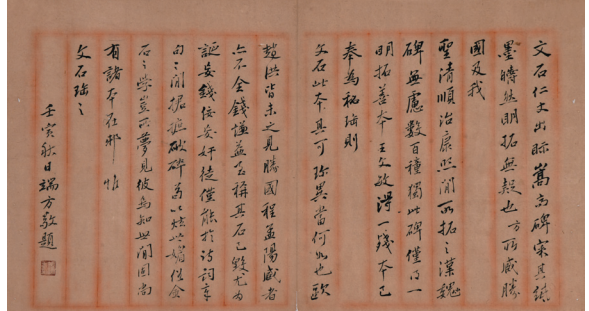 文石仁丈出眎嵩高碑宋其紙
墨時然明拓無疑也方所藏勝
國及我
聖清順治康熙間所拓之漢魏
碑無慮數百種獨此碑僅得一
明拓善本王文敏得一殘本已
奉為秘珤則
文石此本其可珍異當何如也歐
趙洪皆未之見勝國程孟陽藏者
亦不全錢慊益至稱其石已毀尤為
誣妄錢佞妄奸徒僅能於詩詞章
句之間掂撦破碎為以炫世媚俗金
石之學豈所夢見彼焉知世間固尚
有諸本在邪 帖
文石珤之
壬寅秋日端方敬題